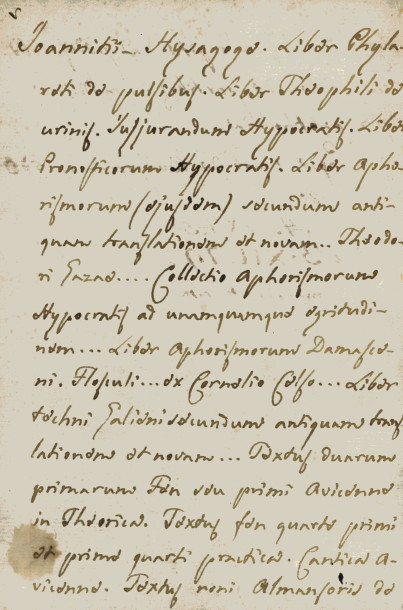 Joannitii Hysagoge. Liber Phyla-
reti de pulsibus. Liber Theophili de
urinis. Jusjurandum Hypocratis. Liber
Pronosticorum Hypocratis. Liber Apho-
rismorum (ejusdem) secundum anti-
quam translationem et novam.. Theodo-
ri Gazae.... Collectio Aphorismorum
Hypocratis ad unamquamque egritudi-
nem... Liber Aphorismorum Damasce-
ni. Flosculi...ex Cornelio Celso... Liber
techni Galieni secundum antiquam trans
lationem et novam... Textus duarum
primarum Fen seu primi Avicenne
in Theorica. Textus fen quarte primi
et prime quarti practica. Cantica A-
vicenne. Textus noni Almansoris de